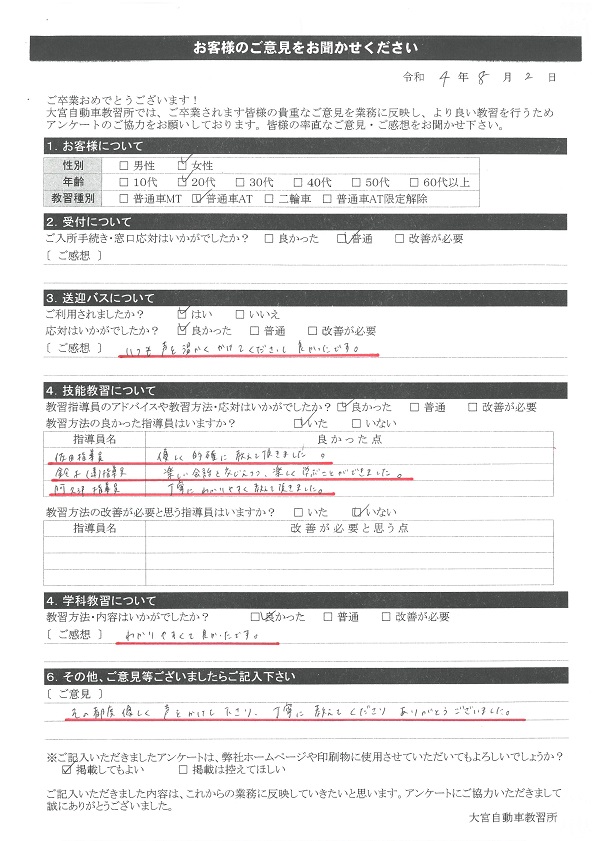 お客様のご意見をお聞かせください
令和 4 年 8 月 2 日
ご卒業おめでとうございます！
大宮自動車教習所では、ご卒業されます皆様の貴重なご意見を業務に反映し、より良い教習を行うため
アンケートのご協力をお願いしております。皆様の率直なご意見・ご感想をお聞かせ下さい。
1. お客様について
性別 □ 男性 ☑ 女性
年齢 □ 10代 ☑ 20代 □ 30代 □ 40代 □ 50代 □ 60代以上
教習種別 □ 普通車MT ☑ 普通車AT □ 二輪車 □ 普通車AT限定解除
2. 受付について
ご入所手続き・窓口応対はいかがでしたか？ □ 良かった ☑ 普通 □ 改善が必要
〔 ご感想 〕
3. 送迎バスについて
ご利用されましたか？ ☑ はい □ いいえ
応対はいかがでしたか？ ☑ 良かった □ 普通 □ 改善が必要
〔 ご感想 〕 いつも声を温かくかけてくださいし良かったです。
4. 技能教習について
教習指導員のアドバイスや教習方法・応対はいかがでしたか？ ☑ 良かった □ 普通 □ 改善が必要
教習方法の良かった指導員はいますか？ ☑ いた □ いない
指導員名 良かった点
佐田指導員 優しく的確に教えて頂きました。
鈴木 指導員 楽しい会話と 楽しく学ぶことができました。
指導員 丁寧にわかりやすく教えて頂きました。
教習方法の改善が必要と思う指導員はいますか？ □ いた ☑ いない
指導員名 改善が必要と思う点
4. 学科教習について
教習方法・内容はいかがでしたか？ ☑ 良かった □ 普通 □ 改善が必要
〔 ご感想 〕 わかりやすくて良かったです。
6. その他、ご意見等ございましたらご記入下さい
〔 ご意見 〕
その都度優しく声をかけて下さり、丁寧に教えてくださりありがとうございました。
※ご記入いただきましたアンケートは、弊社ホームページや印刷物に使用させていただいてもよろしいでしょうか？
☑ 掲載してもよい □ 掲載は控えてほしい
ご記入いただきました内容は、これからの業務に反映していきたいと思います。アンケートにご協力いただきまして
誠にありがとうございました。
大宮自動車教習所